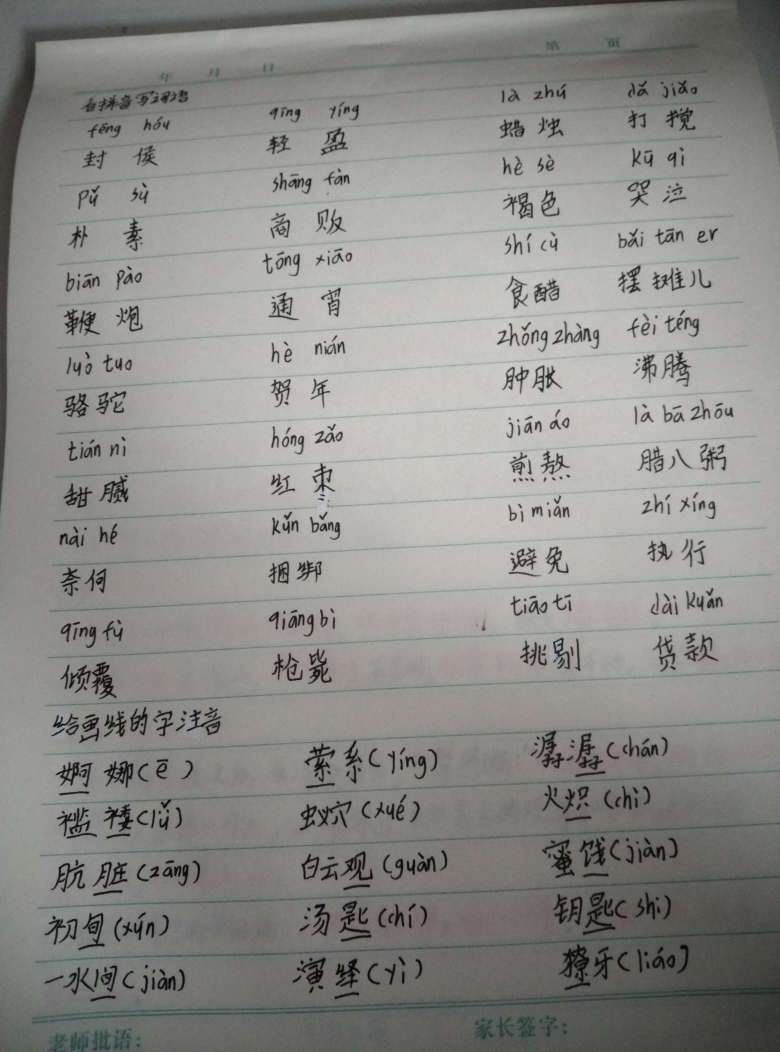 年 月 日 第 页
看拼音写词语
fēng hóu qīng yíng là zhú dǎ jiǎo
封侯 轻盈 蜡烛 打搅
pǔ sù shāng fàn hè sè kū qì
朴素 商贩 褐色 哭泣
biān pào tōng xiāo shí cù bǎi tān er
鞭炮 通宵 食醋 摆摊儿
luò tuo hè nián zhǒng zhàng fèi téng
骆驼 贺年 肿胀 沸腾
tián nì hóng zǎo jiān áo là bā zhōu
甜腻 红枣 煎熬 腊八粥
nài hé kǔn bǎng bì miǎn zhí xíng
奈何 捆绑 避免 执行
qīng fù qiāng bì tiāo tī dài kuǎn
倾覆 枪毙 挑剔 贷款
给画线的字注音
婀娜(ē) 萦系(yíng) 潺潺(chán)
褴褛(lǚ) 蚁穴(xué) 火炽(chì)
肮脏(zāng) 白云观(guàn) 蜜饯(jiàn)
初旬(xún) 汤匙(chí) 钥匙(shi)
一水间(jiàn) 演绎(yì) 獠牙(liáo)
老师批语: 家长签字: